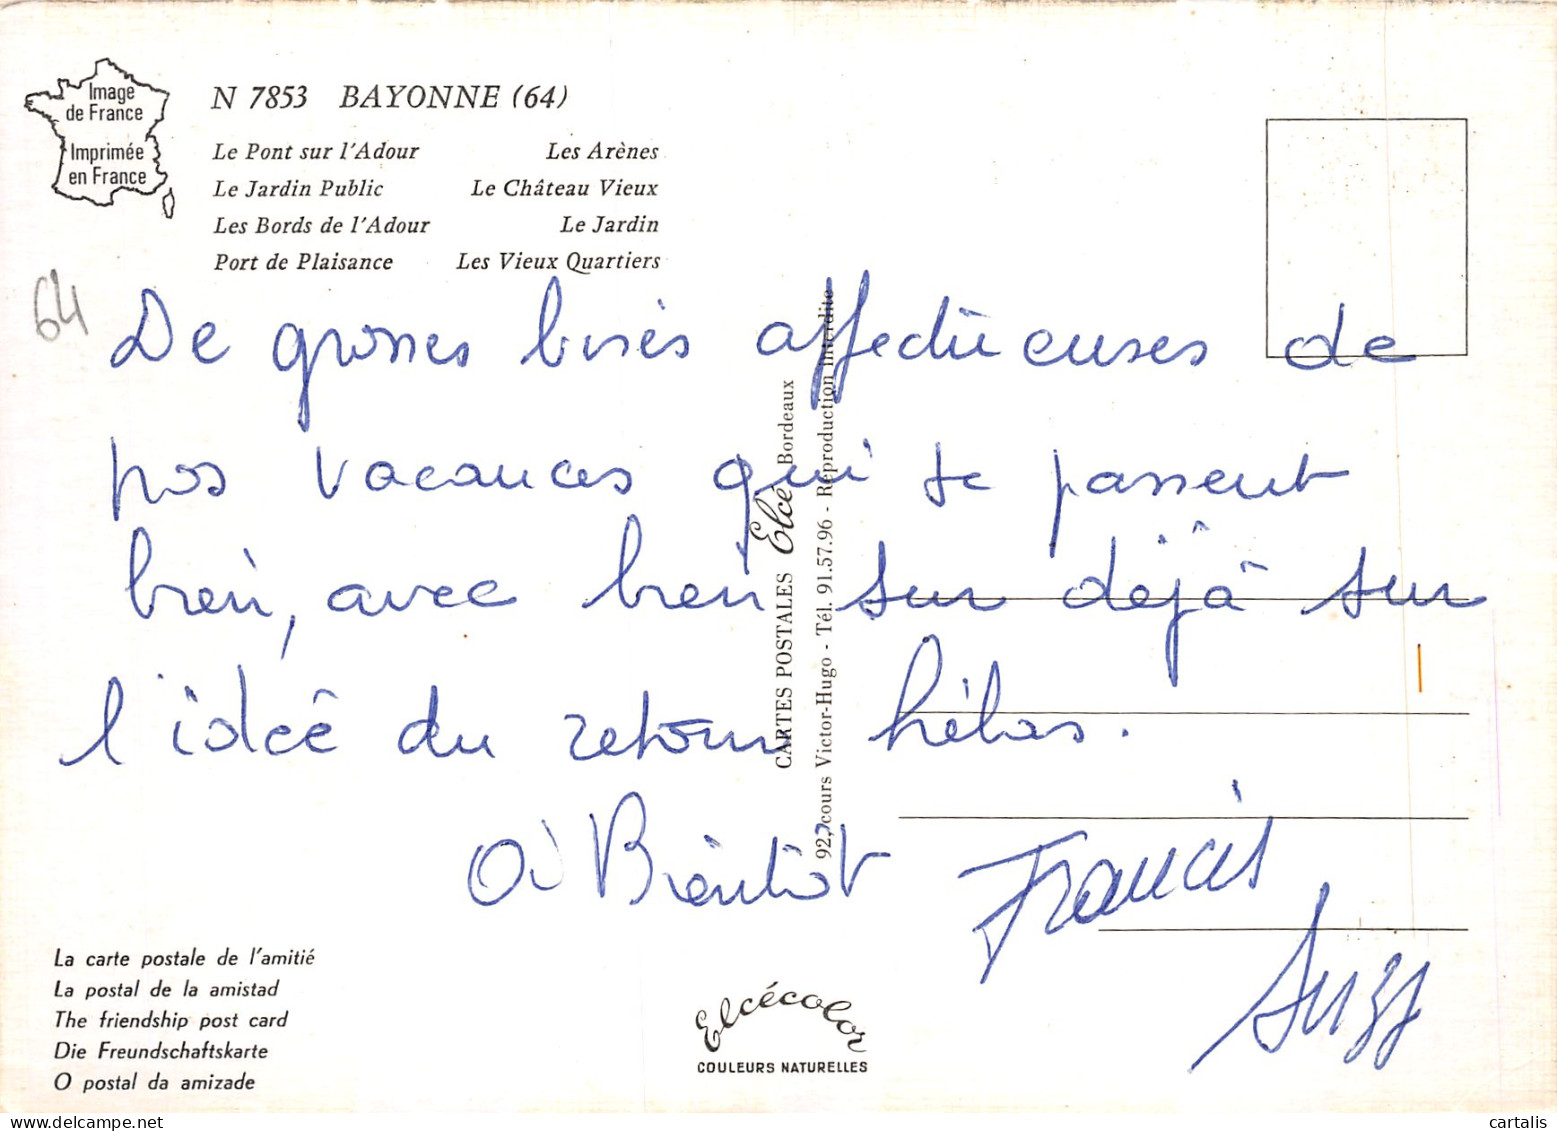 Image
de France
Imprimée
en France
N 7853 BAYONNE (64)
Le Pont sur l'Adour Les Arènes
Le Jardin Public Le Château Vieux
Les Bords de l'Adour Le Jardin
Port de Plaisance Les Vieux Quartiers
64
De grosses bises affectueuses de
nos vacances qui se passent
bien, avec bien sur déjà sur
l'idée du retour hélas.
à Bientôt
Francis
Suzy
CARTES POSTALES Elcé Bordeaux
92, cours Victor-Hugo - Tél. 91.57.96 - Reproduction Interdite
La carte postale de l'amitié
La postal de la amistad
The friendship post card
Die Freundschaftskarte
O postal da amizade
Elcécolor
COULEURS NATURELLES
cartalis